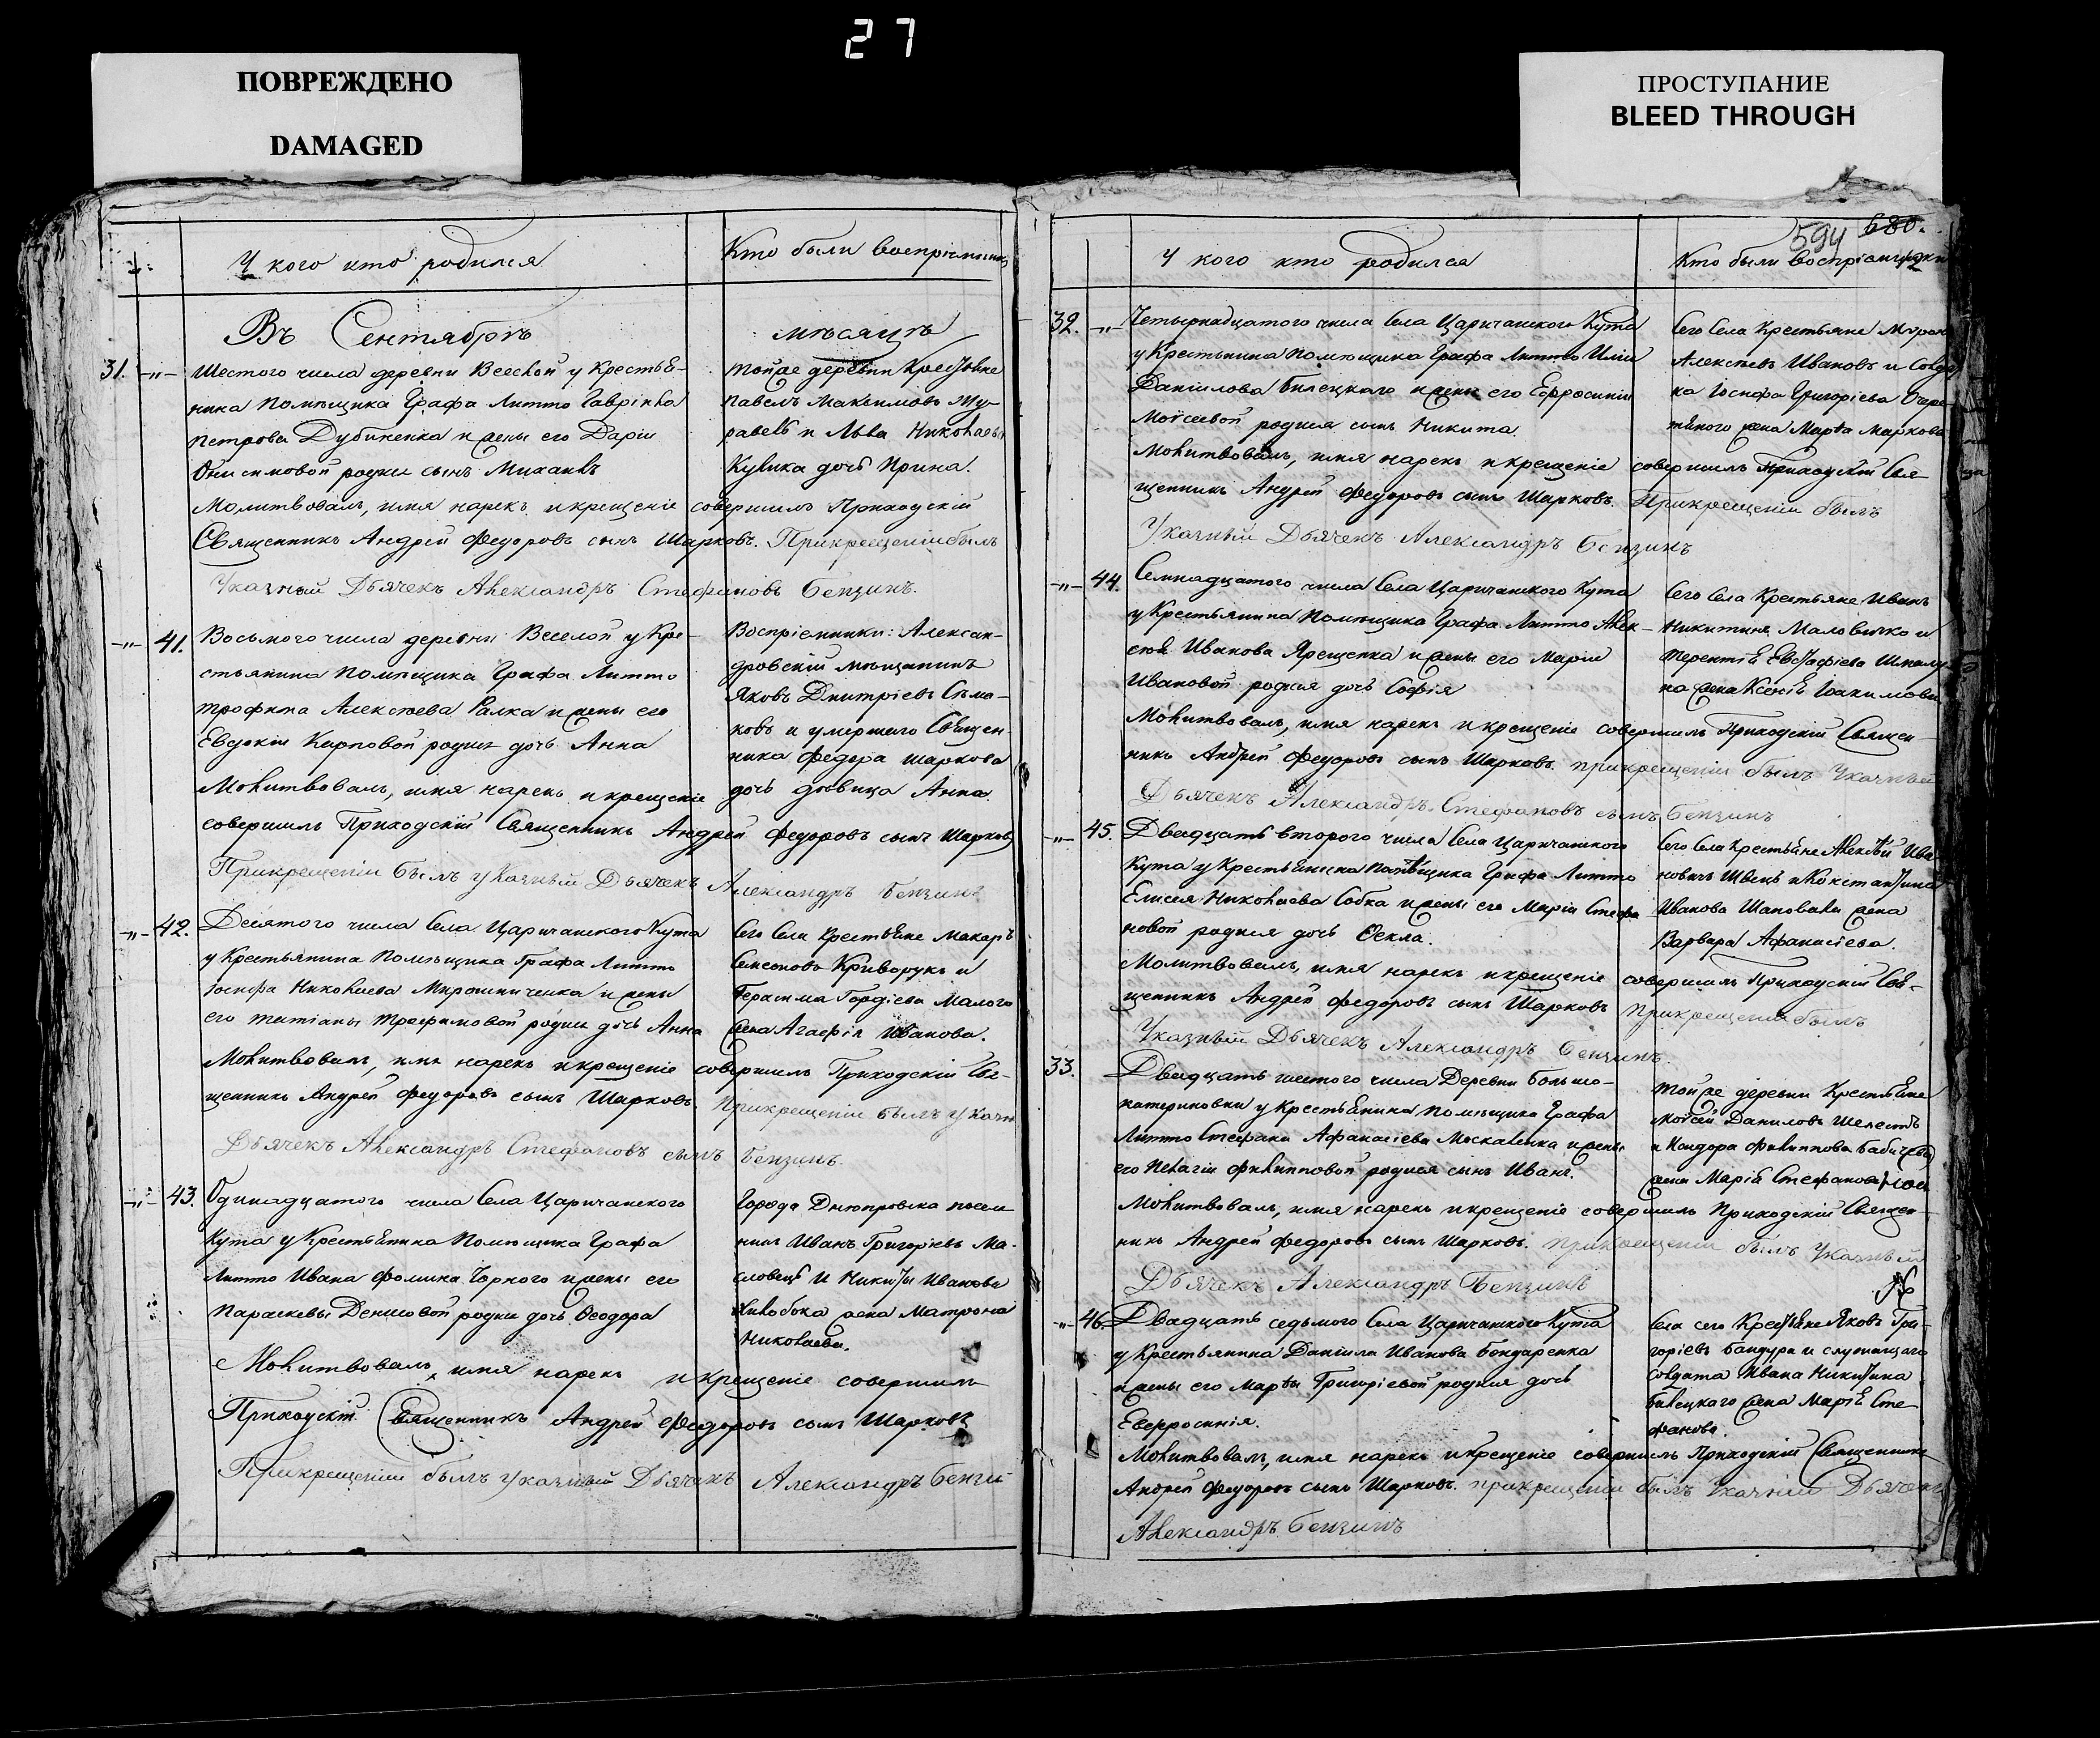 27
ПОВРЕЖДЕНО
DAMAGED
ПРОСТУПАНИЕ
BLEED THROUGH
У кого кто родился
Кто были воспріемники
Въ Сентябрѣ
мѣсяцѣ
31. -„-
Шестого числа деревни Веселой у Крестья-
нина Помѣщика Графа Литто Гавріила
Петрова Дубиненка и жены его Даріи
Онисимовой родился сынъ Михаилъ
Тойже деревни Крестьяне
Павелъ Максимовъ Жу-
равель и Льва Николаева
Кулика дочь Ирина.
Молитвовалъ, имя нарекъ и крещеніе совершилъ Приходскій
Священникъ Андрей Федоровъ сынъ Шарковъ. При крещеніи былъ
Указный Дьячекъ Александръ Стефановъ Бензинъ.
-„- 41.
Восьмого числа деревни Веселой у Кре-
стьянина Помѣщика Графа Литто
Трофима Алексѣева Галка и жены его
Евдокіи Карповой родися дочь Анна
Воспріемники: Алексан-
дровскій мѣщанинъ
Яковъ Дмитріевъ Сѣма-
ковъ и умершаго Священ-
ника Федора Шаркова
дочь дѣвица Анна.
Молитвовалъ, имя нарекъ и крещеніе
совершилъ Приходскій Священникъ Андрей Федоровъ сынъ Шарковъ
При крещеніи былъ указный Дьячекъ Александръ Бензинъ
-„- 42.
Десятого числа Села Царичанского Кута
у Крестьянина Помѣщика Графа Литто
Іосифа Николаева Мирошниченка и жены
его Татіаны Трофимовой родися дочь Анна
Сего Села Крестьяне Макаръ
Семеновъ Криворукъ и
Герасима Гордіева Малого
жена Агафія Иванова.
Молитвовалъ, имя нарекъ и крещеніе совершилъ Приходскій Свя-
щенникъ Андрей Федоровъ сынъ Шарковъ. При крещеніи былъ указн
Дьячекъ Александръ Стефановъ сынъ Бензинъ.
-„- 43.
Одинадцатого числа Села Царичанского
Кута у Крестьянина Помѣщика Графа
Литто Ивана Фомина Чорного и жены его
Параскевы Денисовой родися дочь Феодора
Города Днѣпровска
Иванъ Григорьевъ Ма-
словецъ и Никиты Иванова
жена Матрона
Николаева.
Молитвовалъ, имя нарекъ и крещеніе совершилъ
Приходскій Священникъ Андрей Федоровъ сынъ Шарковъ
При крещеніи былъ указный Дьячекъ Александръ Бензин
594 680.
У кого кто родился
Кто были воспріемники
32. -„-
Четырнадцатого числа Села Царичанского Кута
у Крестьянина Помѣщика Графа Литто Иліи
Даніилова Билецкаго и жены его Ефросиніи
Моѵсеевой родися сынъ Никита.
Сего Села Крестьяне Миронъ
Алексѣевъ Ивановъ и
Іосифа Григоріева Очере-
тяного жена Марѳа Маркова
Молитвовалъ, имя нарекъ и крещеніе совершилъ Приходскій Свя-
щенникъ Андрей Федоровъ сынъ Шарковъ. При крещеніи былъ
Указный Дьячекъ Александръ Бензинъ
-„- 44.
Семнадцатого числа Села Царичанского Кута
у Крестьянина Помѣщика Графа Литто Алек-
сѣя Иванова Ярещенка и жены его Маріи
Ивановой родися дочь Софія
Сего Села Крестьяне Иванъ
Никитинъ Маловичко и
Терентія Евстафіева
жена Ксенія Іоакимова
Молитвовалъ, имя нарекъ и крещеніе совершилъ Приходскій Священ-
никъ Андрей Федоровъ сынъ Шарковъ. При крещеніи былъ Указный
Дьячекъ Александръ Стефановъ сынъ Бензинъ
-„- 45.
Двадцать второго числа Села Царичанского
Кута у Крестьянина Помѣщика Графа Литто
Елисея Николаева Собка и жены его Маріи Стефа
новой родися дочь Ѳекла.
Сего Села Крестьяне Алексѣй Ива
новичъ Швецъ и Константина
Иванова Шаповала жена
Варвара Афанасіева.
Молитвовалъ, имя нарекъ и крещеніе совершилъ Приходскій Свя-
щенникъ Андрей Федоровъ сынъ Шарковъ При крещеніи былъ
Указный Дьячекъ Александръ Бензинъ.
33.
Двадцать шестого числа Деревни Больше-
катериновки у Крестьянина Помѣщика Графа
Литто Стефана Афанасіева Москаленка и жены
его Пелагіи Филипповой родися сынъ Иванъ.
Тойже деревни Крестьяне
Моѵсей Даниловъ Шелестъ
и Филиппова Бабичева
жена Марія Стефанова
Молитвовалъ, имя нарекъ и крещеніе совершилъ Приходскій Священ-
никъ Андрей Федоровъ сынъ Шарковъ. При крещеніи былъ Указный
Дьячекъ Александръ Бензинъ
-„- 46.
Двадцать седьмого Села Царичанского Кута
у Крестьянина Даніила Иванова Бондаренка
и жены его Марѳы Григоріевой родися дочь
Евфросинія.
Села сего Крестьяне Яковъ Гри-
горіевъ Бандура и служащаго
солдата Ивана Никитина
Билецкого жена Марія Сте
фанова.
Молитвовалъ, имя нарекъ и крещеніе совершилъ Приходскій Священникъ
Андрей Федоровъ сынъ Шарковъ. При крещеніи былъ Указный Дьячекъ
Александръ Бензинъ